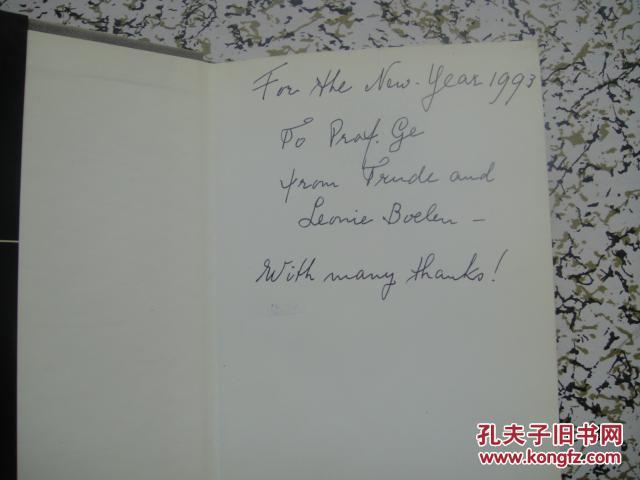 For the New-Year 1993
To Prof. Ge
from Trude and
Leonie Boelen –
With many thanks!
孔夫子旧书网
www.kongfz.com